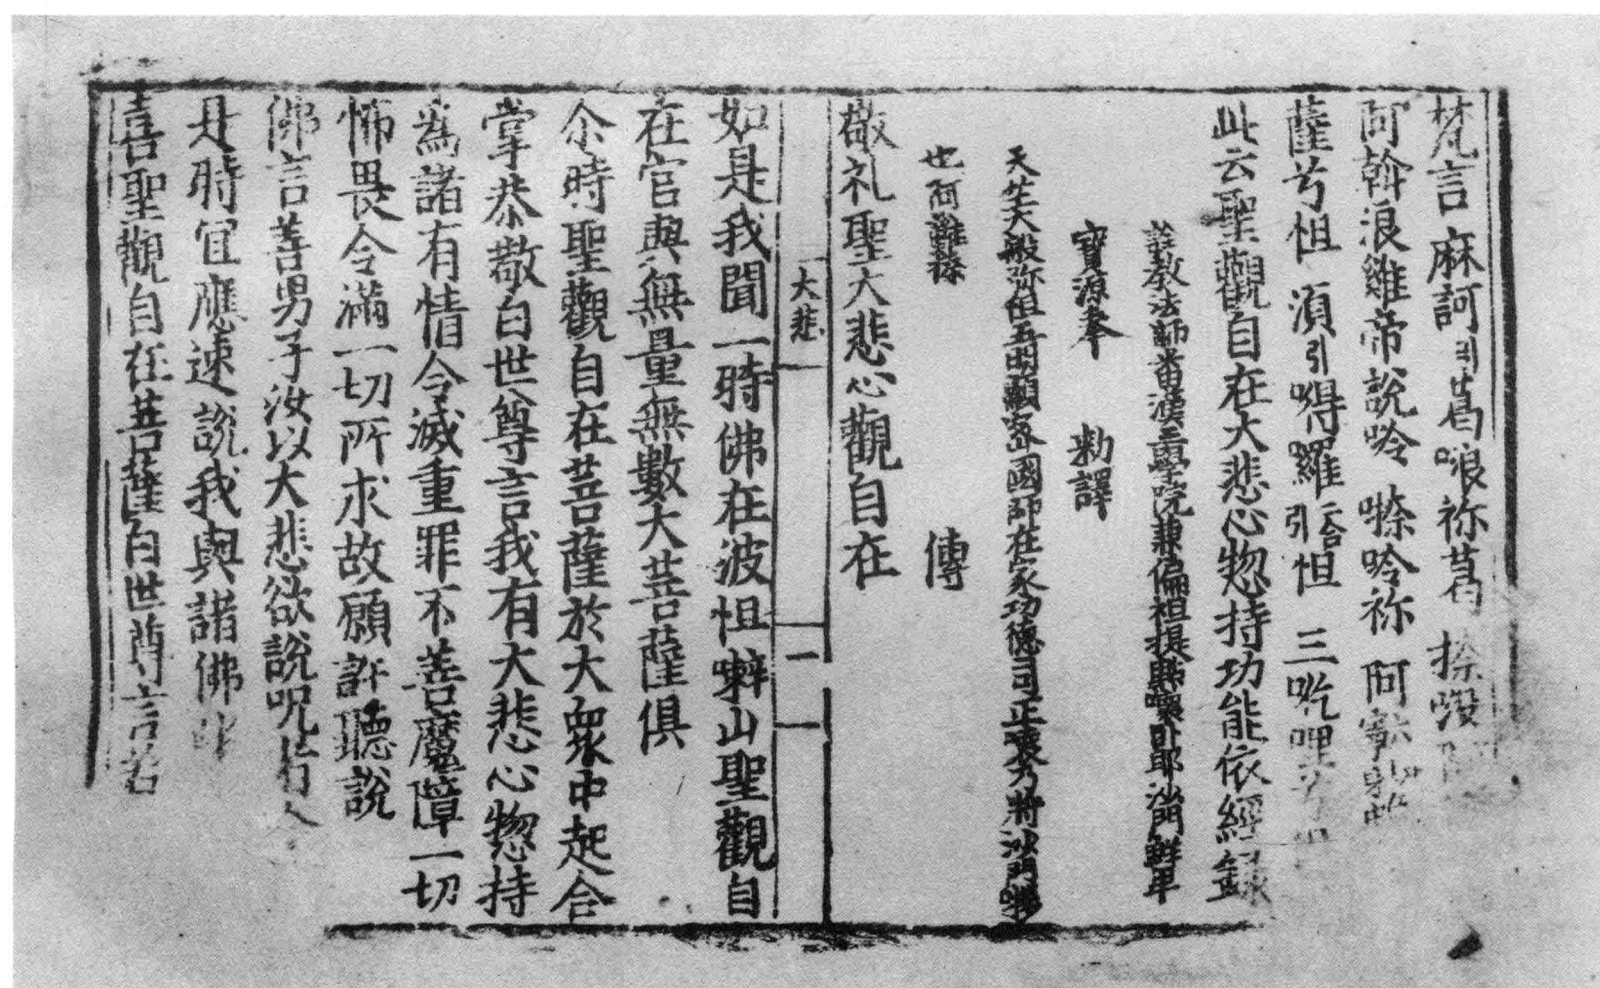 梵言麻訶引葛㗶祢葛 捺
阿斡浪雞帝說吟 㗚吟祢 阿
薩兮怛 湏引嘚羅二合引怛 三吃哩
此云聖觀自在大悲心惣持功能依經錄
詮教法師番漢三學院兼偏袒提點嚷卧耶沙門鮮卑
寶源奉 勑譯
天竺大般弥怛五明顯密國師在家功德司正嚷乃將沙門
也阿難捺 傳
敬礼聖大悲心觀自在
大悲 一 一
如是我聞一時佛在波怛㘑山聖觀自
在宮與無量無數大菩薩俱
尒時聖觀自在菩薩於大眾中起合
掌恭敬白世尊言我有大悲心惣持
為諸有情令滅重罪不善魔障一切
怖畏令滿一切所求故願許聽說
佛言善男子汝以大悲欲說呪者今
是時宜應速說我與諸佛
喜聖觀自在菩薩白世尊言若